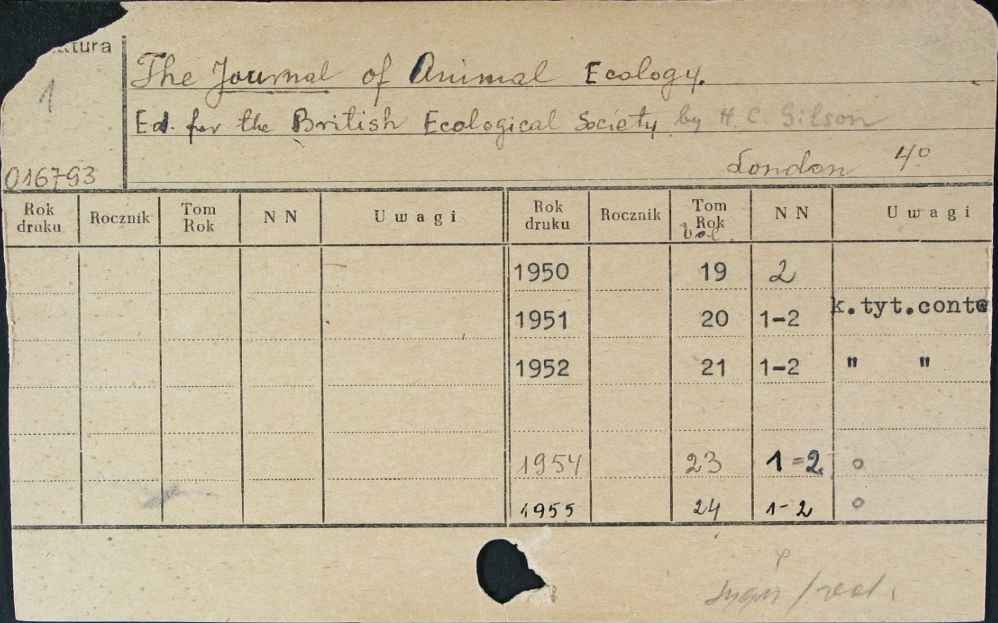 1
The Journal of Animal Ecology.
Ed. for the British Ecological Society by H. C. Gilson
London 4°
016793
Rok druku Rocznik Tom Rok N N Uwagi Rok druku Rocznik Tom Rok N N Uwagi
vol.
1950 19 2
1951 20 1-2 k.tyt.conte
1952 21 1-2 " "
1954 23 1=2 o
1955 24 1-2 o